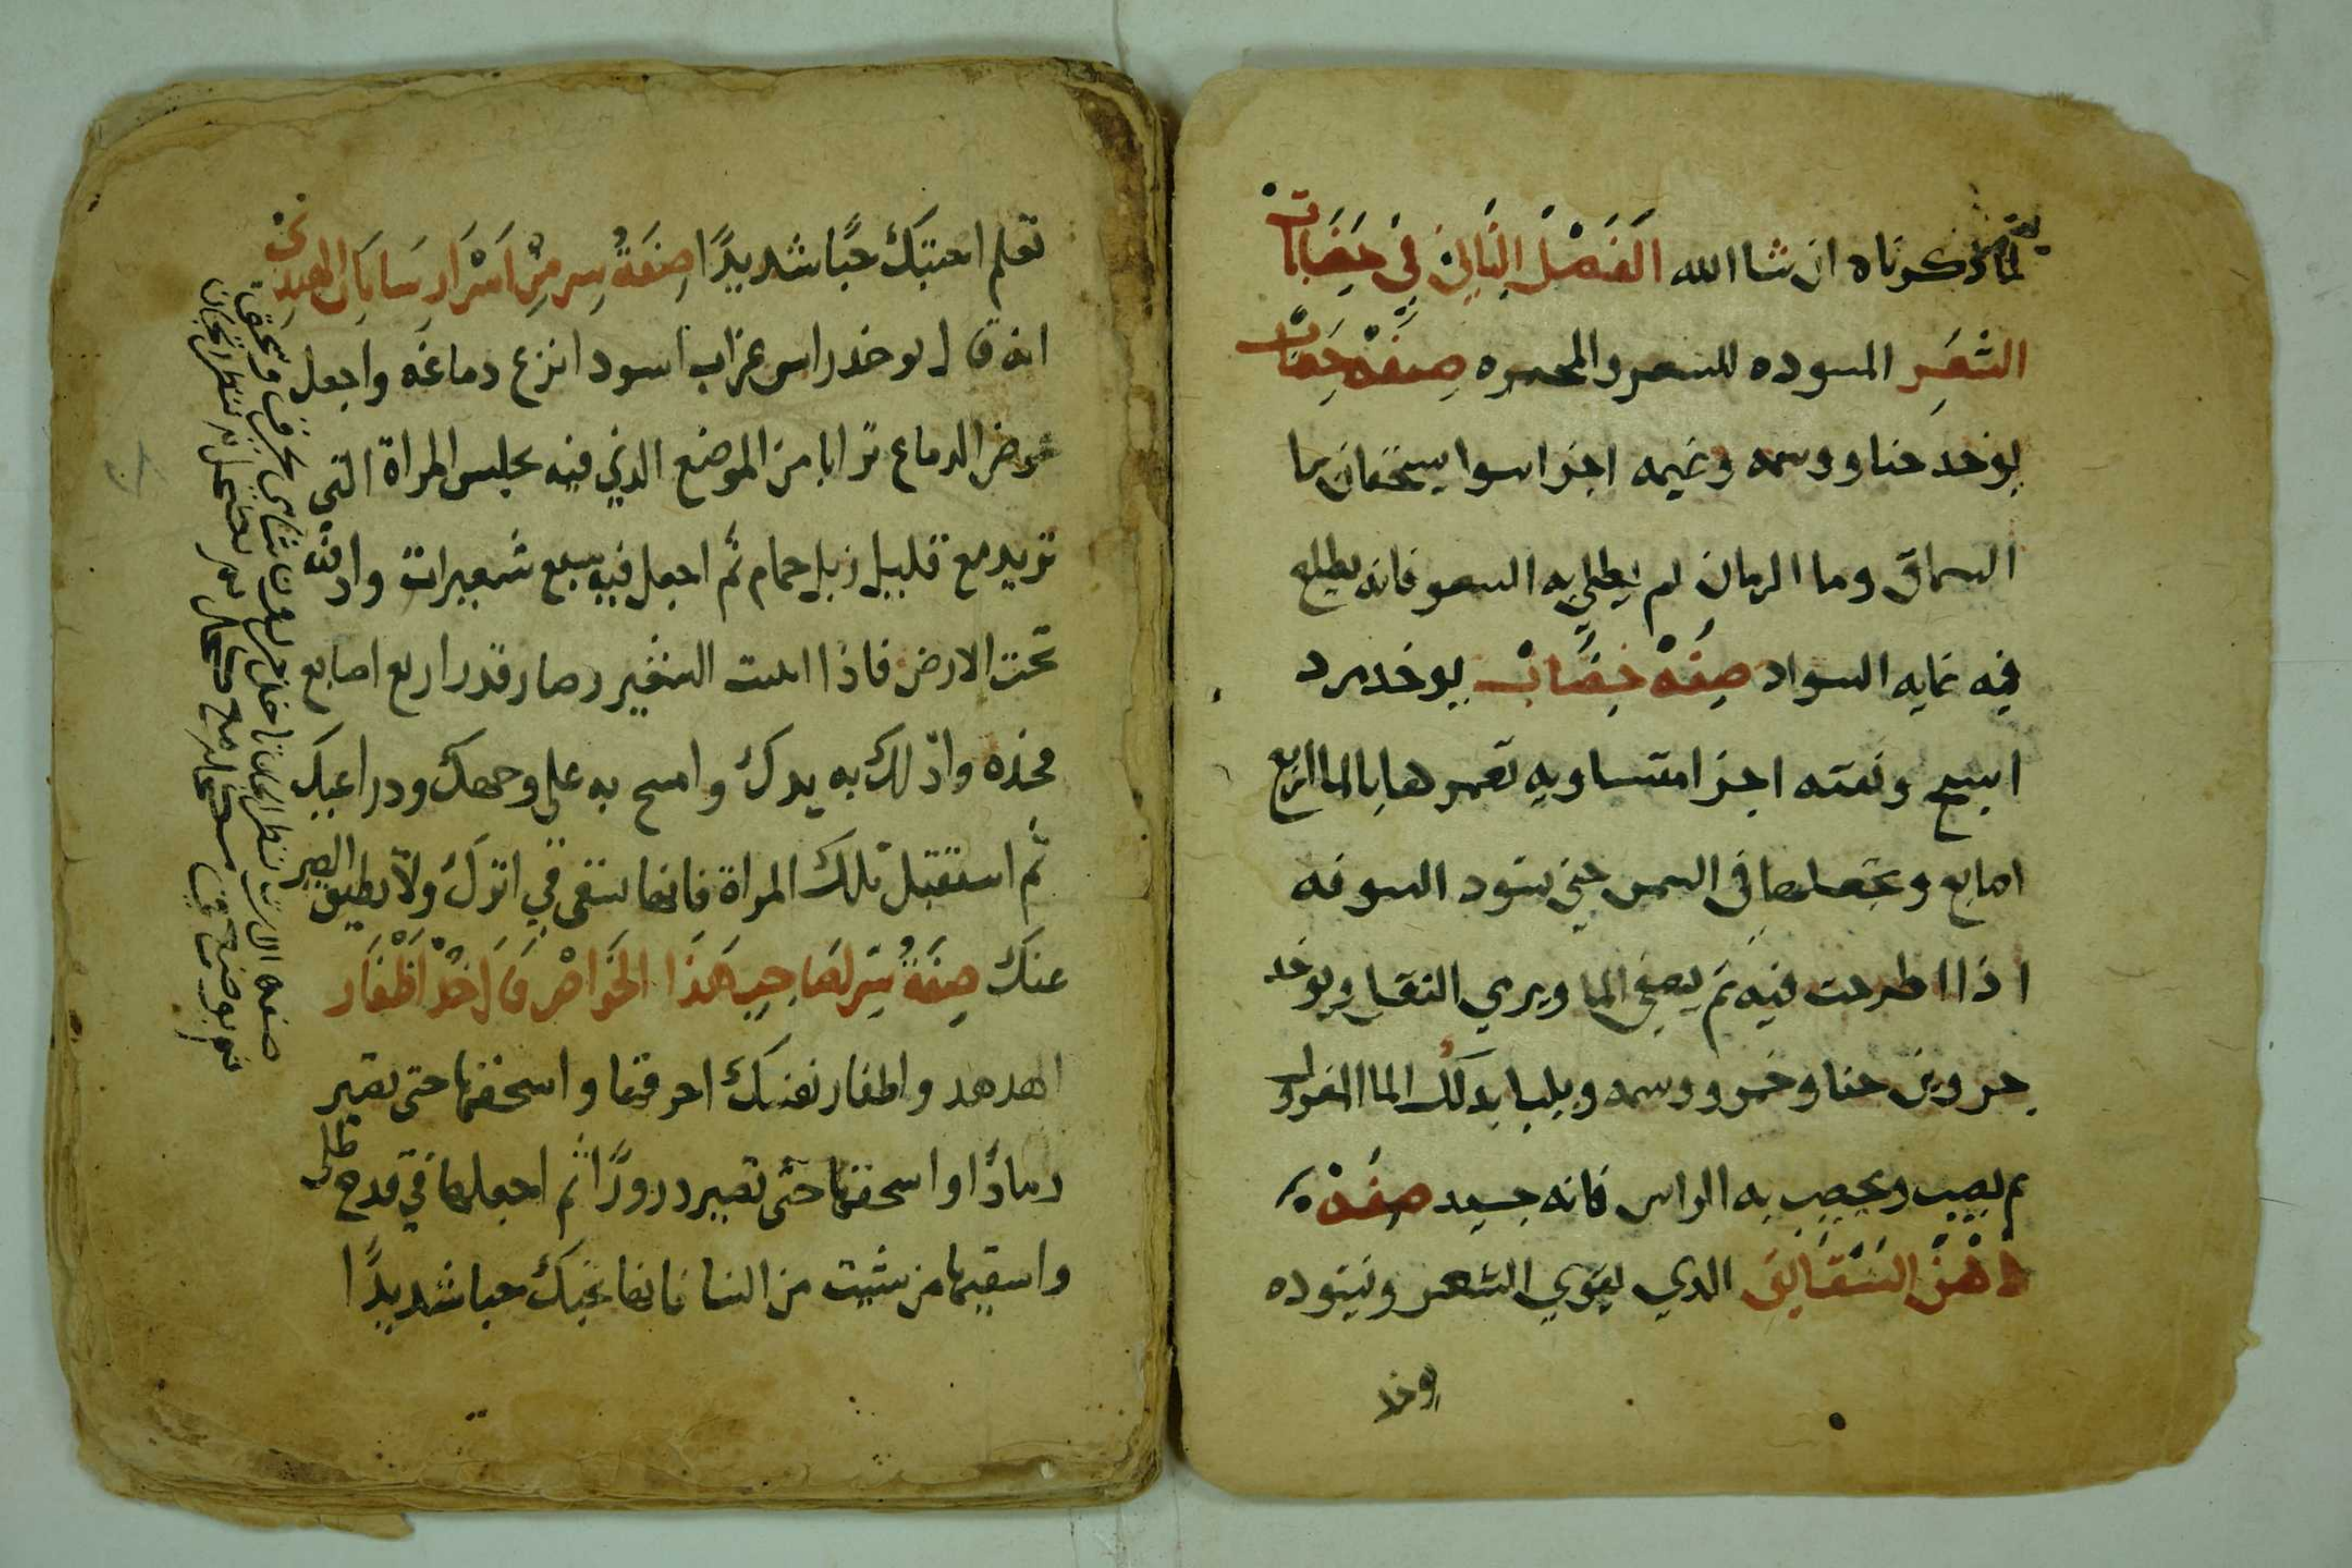 لما ذكرناه ان شا الله الفصل الثاني في خضابات
الشعر المسوده للشعر والمحمره صفة خضاب
يوخد حنا ووسمه وغيمه اجزا سوا يسحقان بما
السماق وما الرمان ثم يطلي به الشعر فانه يطلع
فيه غايه السواد صفة خضاب يوخد مرد
اسبيح ونعته اجزا متساويه تغمرها بالما اربع
اصابع وتجعلها في الشمس حتي تسود الصوفه
اذا طرحت فيه ثم يصفي الما ويرمي الثقل ويوخد
جزوين حنا وجزو وسمه ويلبا بذلك الما المغزول
ثم يصب ويخصب به الراس فانه جيد صفة
دهن الشقايق الدي يقوي الشعر ويسوده
يوخد
تعلم احبتك حبا شديدا صفة سر من اسرار سابان الهندي
انه قال يوخد راس غراب اسود انزع دماغه واجعل
عوض الدماغ ترابا من الموضع الدي فيه تجلس المراة التي
تريد مع قليل زبل حمام ثم اجعل فيه سبع شعيرات وادفنه
تحت الارض فاذا انبت الشعير وصار قدر اربع اصابع
فخذه وادلك به يدك وامسح به على وجهك ودراعيك
ثم استقبل تلك المراة فانها تبقى في اثرك ولا تطيق الصبر
عنك صفة سر لصاحب هذا الخواص قال خذ اظفار
الهدهد واظفار نفسك احرقها واسحقها حتى تصير
رمادا او اسحقها حتى تصير درورا ثم اجعلها في قدح طلى
واسقيها من شيت من النسا فانها تحبك حبا شديدا